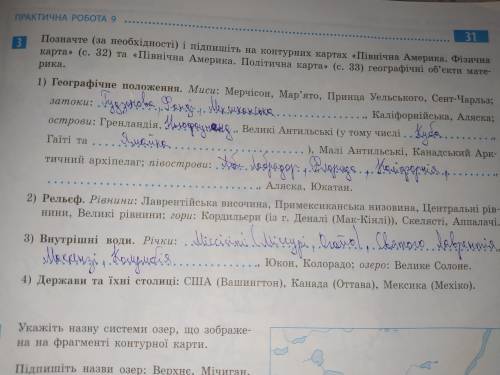 ПРАКТИЧНА РОБОТА 9
31
3 Позначте (за необхідності) і підпишіть на контурних картах «Північна Америка. Фізична
карта» (с. 32) та «Північна Америка. Політична карта» (с. 33) географічні об'єкти мате-
рика.
1) Географічне положення. Миси: Мерчісон, Мар'ято, Принца Уельського, Сент-Чарльз;
затоки: Гудзонова, Фанді, Мексиканська Каліфорнійська, Аляска;
острови: Гренландія, Ньюфаундленд, Великі Антильські (у тому числі Куба,
Гаїті та Ямайка), Малі Антильські, Канадський Арк-
тичний архіпелаг; півострови: Лабрадор, Флорида, Каліфорнія,
Аляска, Юкатан.
2) Рельєф. Рівнини: Лаврентійська височина, Примексиканська низовина, Центральні рів-
нини, Великі рівнини; гори: Кордильєри (із г. Деналі (Мак-Кінлі)), Скелясті, Аппалачі.
3) Внутрішні води. Річки: Міссісіпі (Міссурі, Огайо), Святого Лаврентія,
Маккензі, Колумбія Юкон, Колорадо; озеро: Велике Солоне.
4) Держави та їхні столиці: США (Вашингтон), Канада (Оттава), Мексика (Мехіко).
Укажіть назву системи озер, що зображе-
на на фрагменті контурної карти.
Підпишіть назви озер: Верхнє, Мічиган,